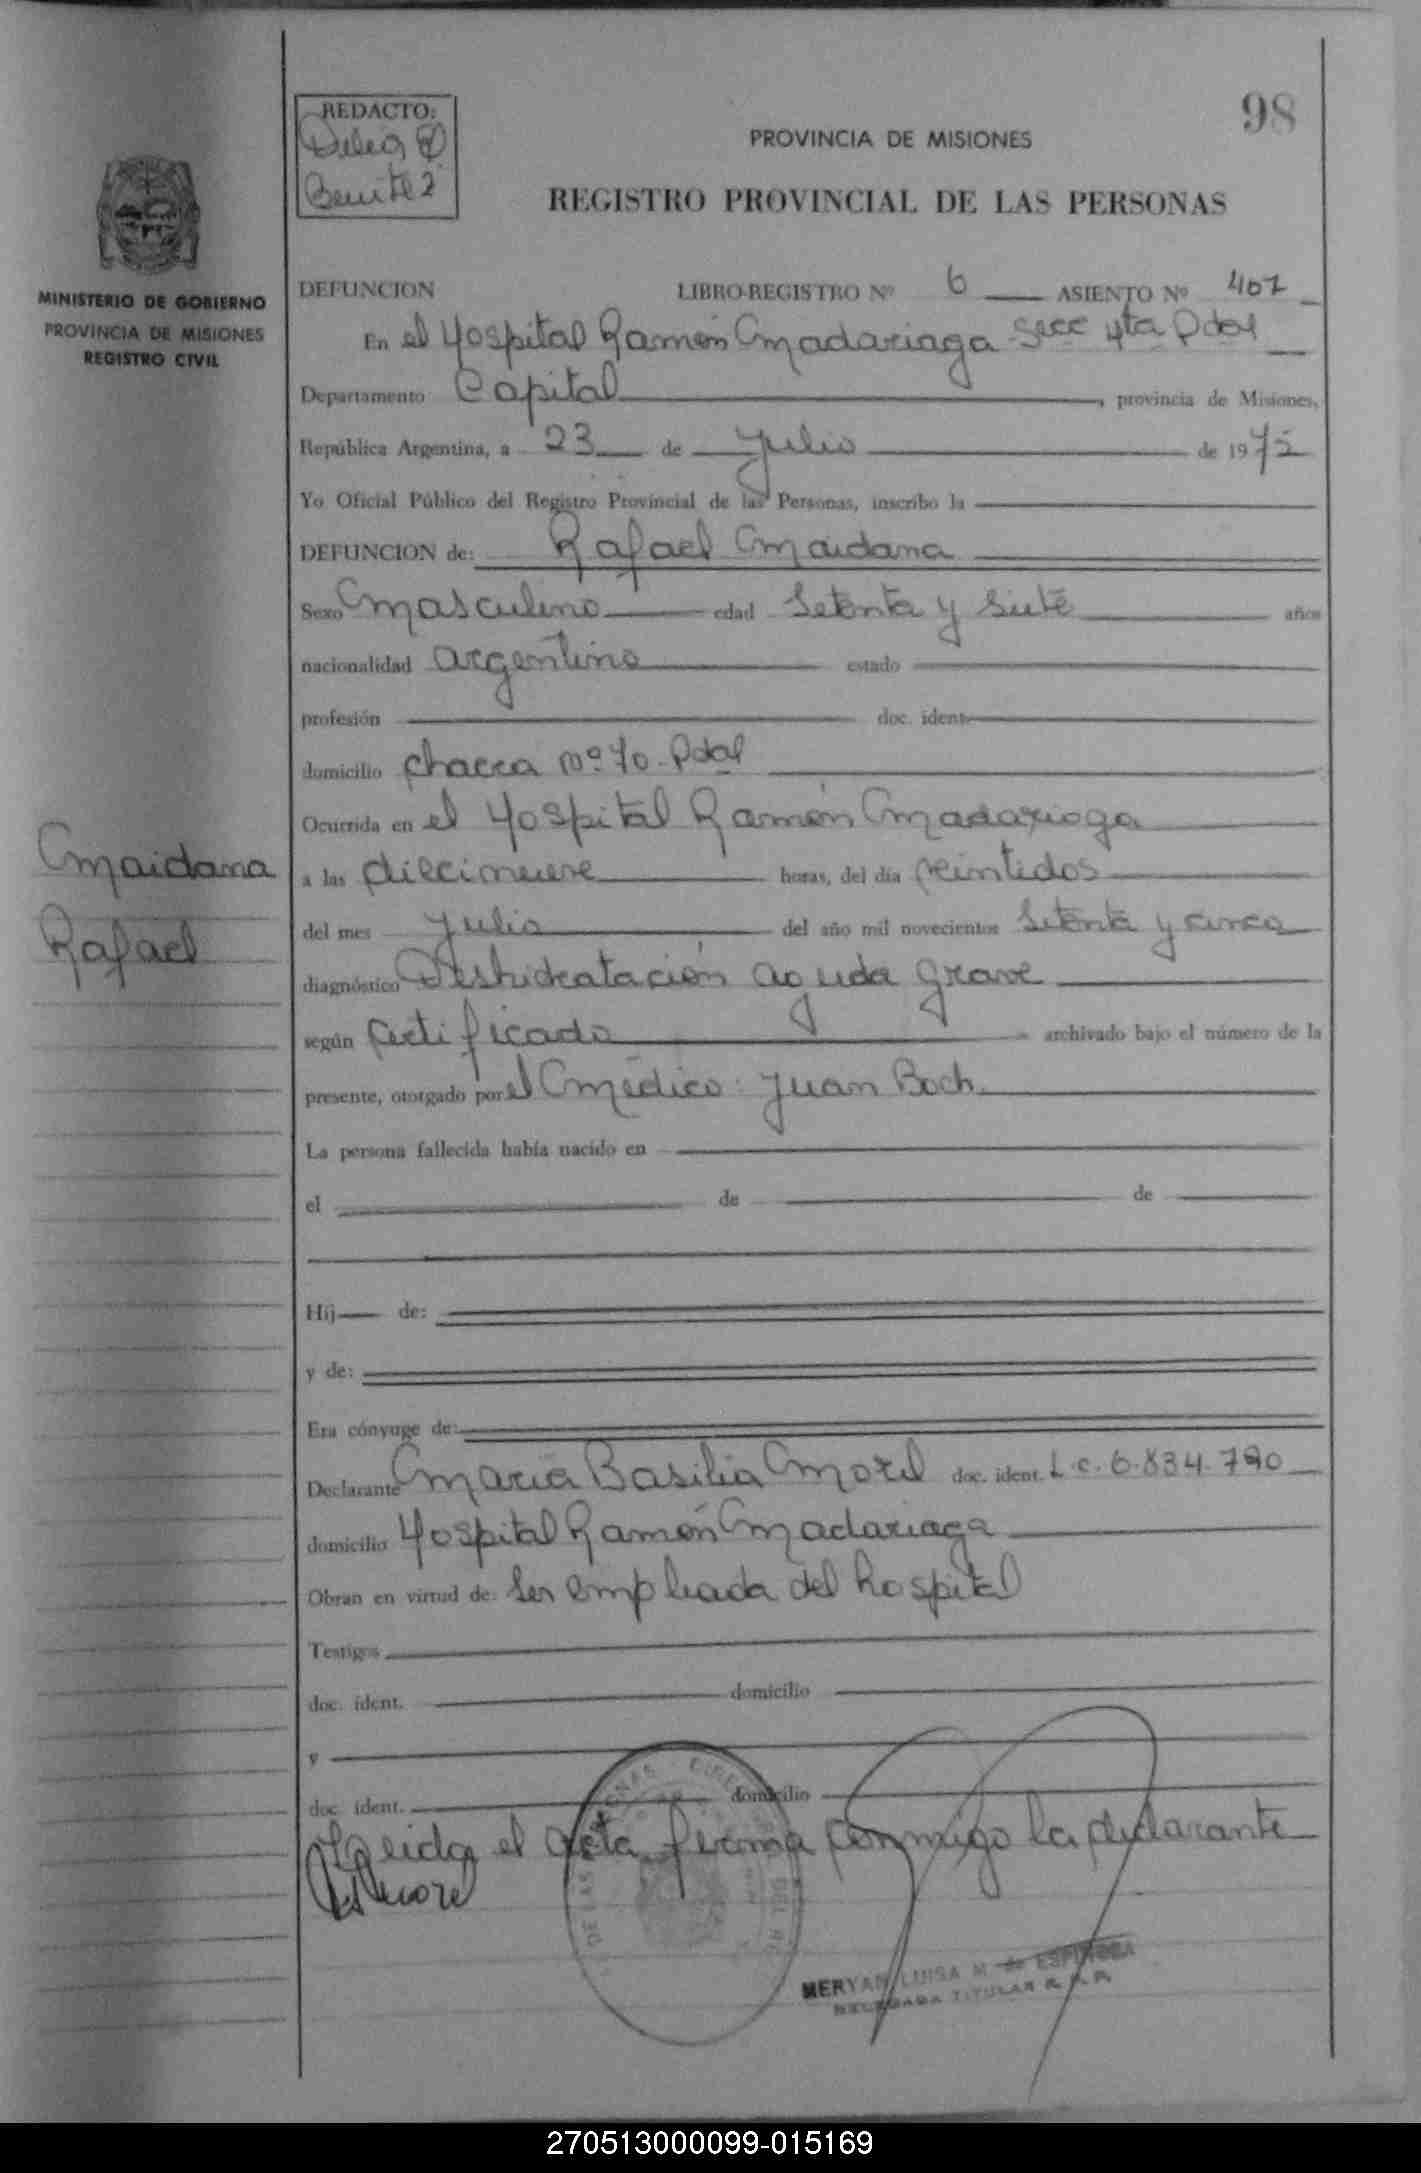 98
REDACTO:
Delia
Benitez
PROVINCIA DE MISIONES
REGISTRO PROVINCIAL DE LAS PERSONAS
MINISTERIO DE GOBIERNO
PROVINCIA DE MISIONES
REGISTRO CIVIL
DEFUNCION LIBRO-REGISTRO Nº 6 ASIENTO Nº 407
En el Hospital Ramón Madariaga Secc 4ta Pdas
Departamento Capital, provincia de Misiones,
República Argentina, a 23 de Julio de 1975
Yo Oficial Público del Registro Provincial de las Personas, inscribo la
DEFUNCION de: Rafael Maidana
Sexo Masculino edad Setenta y Siete años
nacionalidad argentino estado
profesión doc. ident.
domicilio chacra nº 70. Pdas
Ocurrida en el Hospital Ramón Madariaga
Maidana
Rafael
a las diecinueve horas, del día veintidos
del mes Julio del año mil novecientos Setenta y cinco
diagnóstico Deshidratación aguda grave
según certificado archivado bajo el número de la
presente, otorgado por el Médico: Juan Boch
La persona fallecida había nacido en
el de de
Hij de:
y de:
Era cónyuge de:
Declarante María Basilia Morel doc. ident. L.c. 6.834.790
domicilio Hospital Ramón Madariaga
Obran en virtud de: Ser empleada del hospital
Testigos
doc. ident. domicilio
y
doc. ident. domicilio
Leida el acta firma conmigo la declarante
Morel
MERYAN LUISA M. de ESPINOSA
DELEGADA TITULAR R. P. P.
270513000099-015169